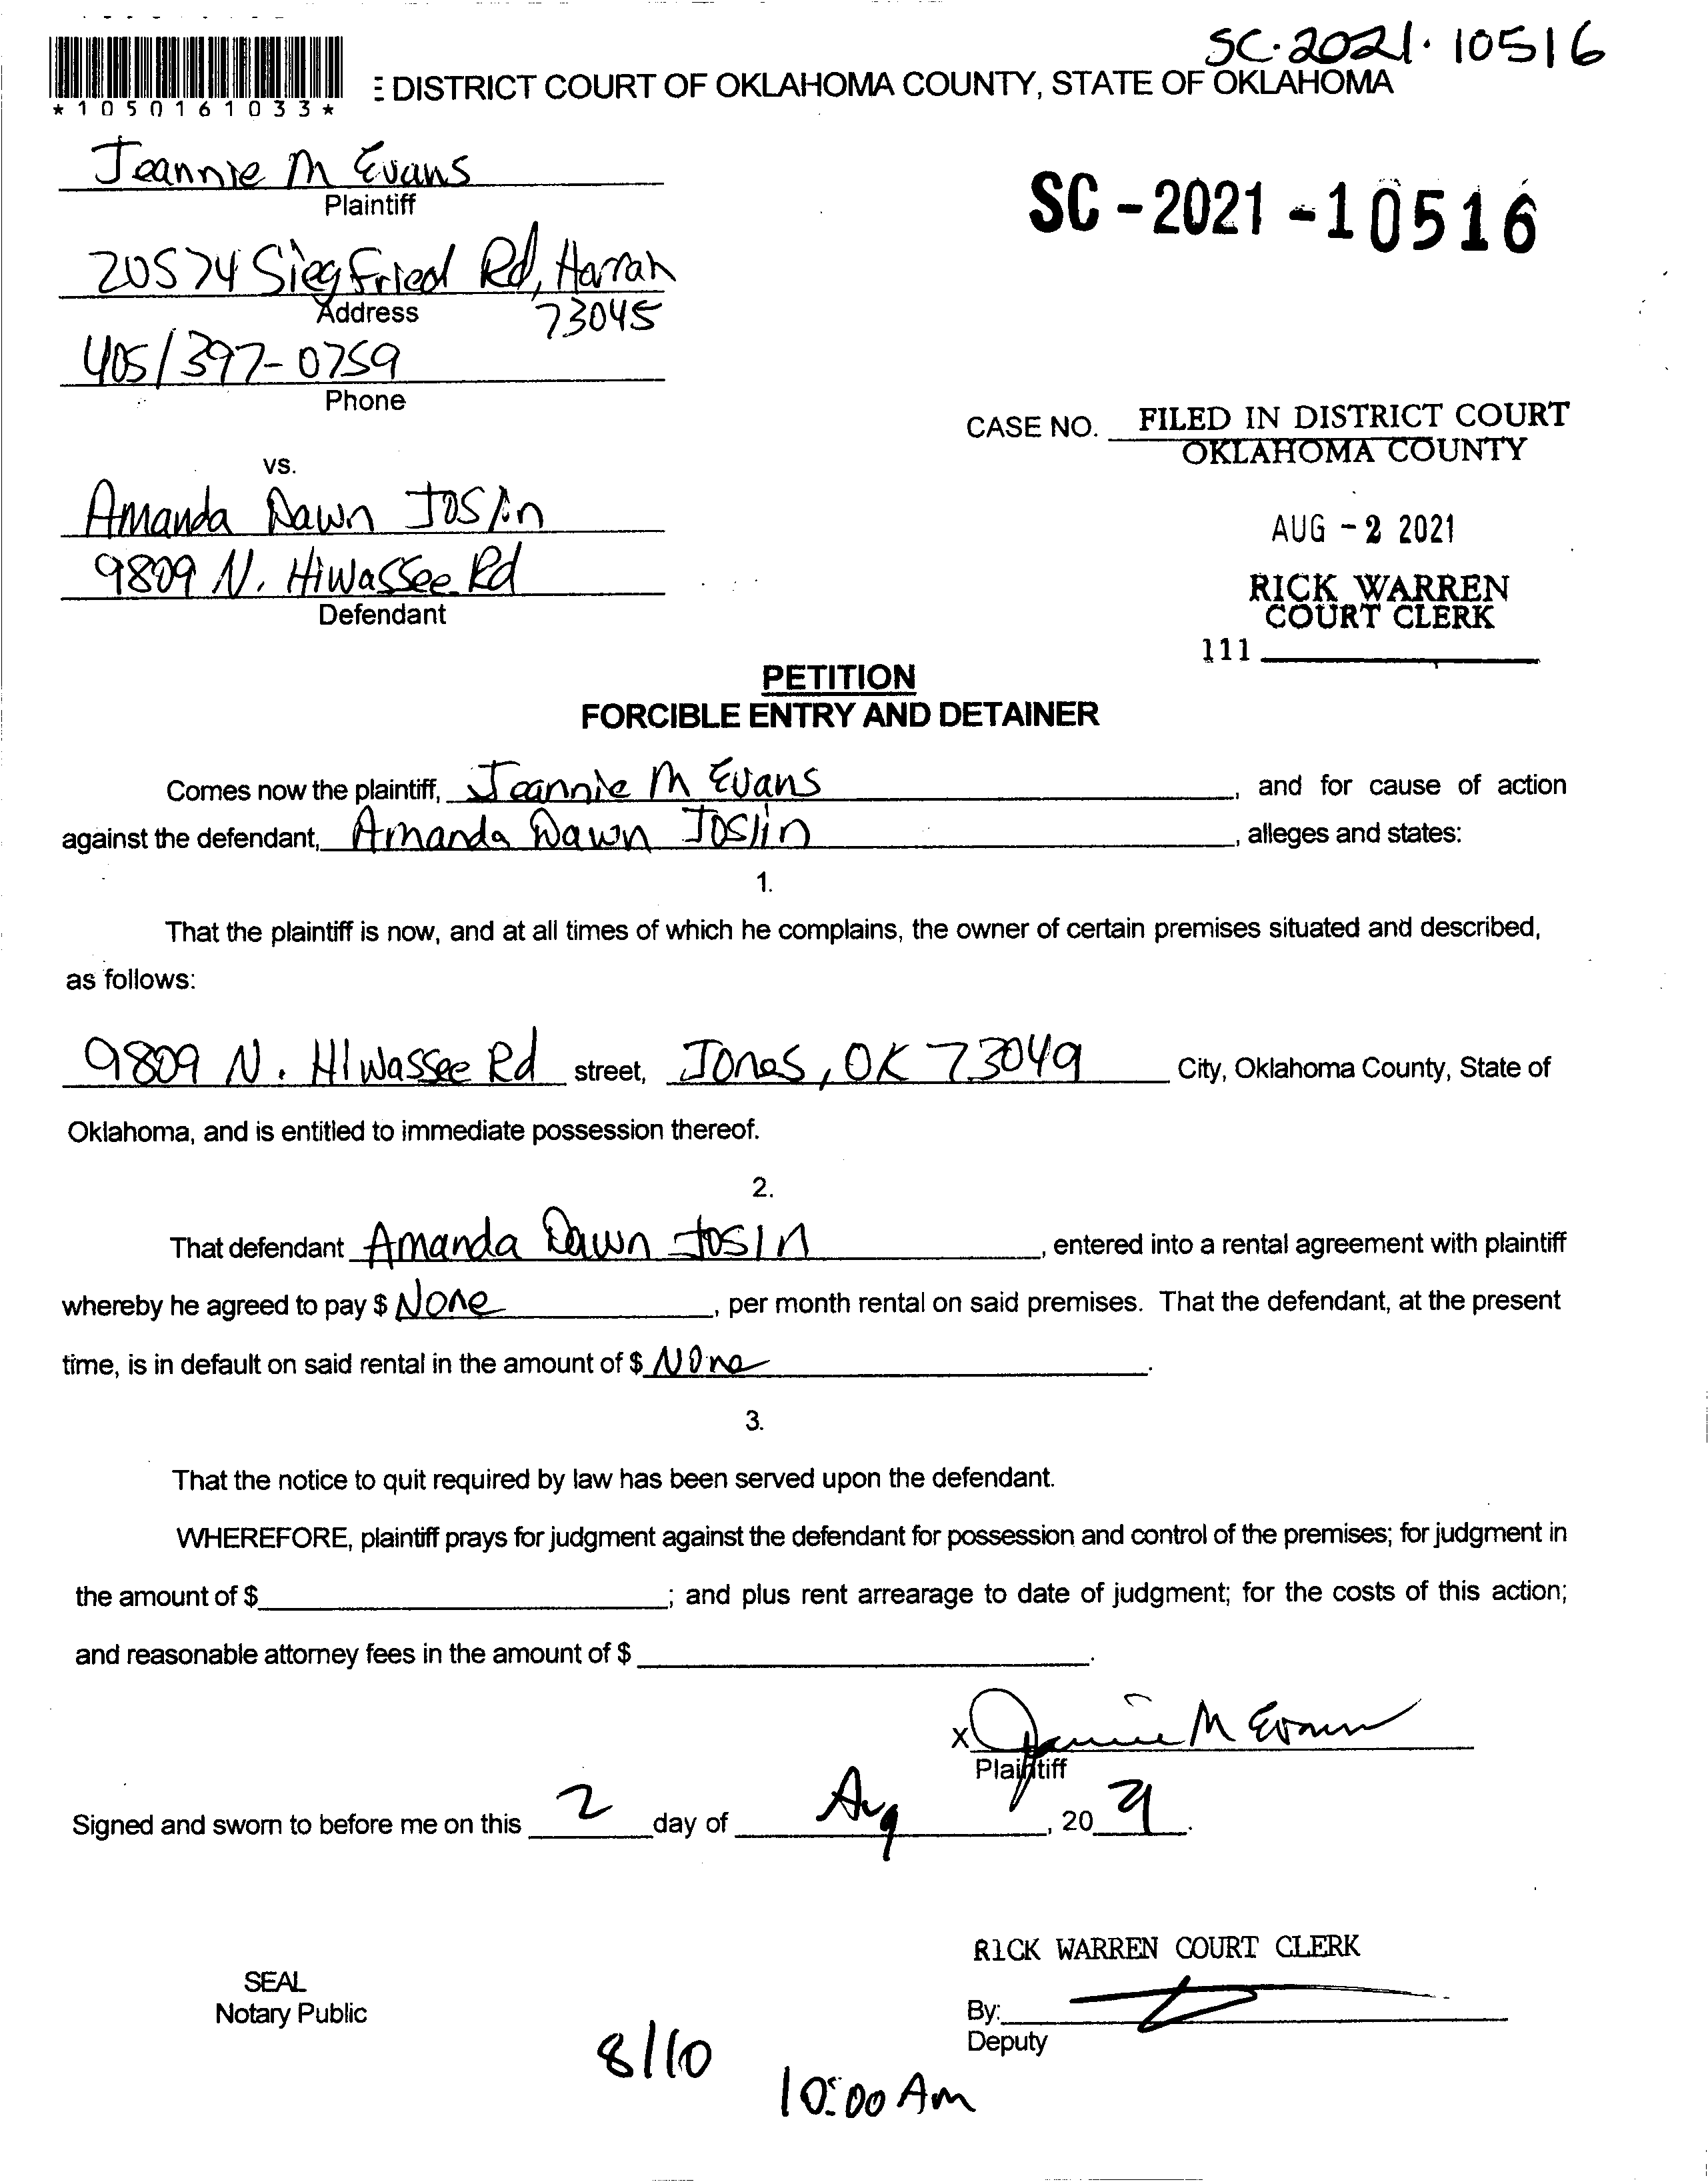 SC-2021-10516
*1050161033*
E DISTRICT COURT OF OKLAHOMA COUNTY, STATE OF OKLAHOMA
Jeannie M Evans
Plaintiff
SC-2021-10516
20574 Siegfried Rd, Harrah
Address 73045
405/397-0759
Phone
CASE NO. FILED IN DISTRICT COURT
OKLAHOMA COUNTY
vs.
Amanda Dawn Joslin
AUG -2 2021
9809 N. Hiwassee Rd
Defendant
RICK WARREN
COURT CLERK
111
PETITION
FORCIBLE ENTRY AND DETAINER
Comes now the plaintiff, Jeannie M Evans, and for cause of action
against the defendant, Amanda Dawn Joslin, alleges and states:
1.
That the plaintiff is now, and at all times of which he complains, the owner of certain premises situated and described,
as follows:
9809 N. Hiwassee Rd street, Jones, OK 73049 City, Oklahoma County, State of
Oklahoma, and is entitled to immediate possession thereof.
2.
That defendant Amanda Dawn Joslin, entered into a rental agreement with plaintiff
whereby he agreed to pay $ None, per month rental on said premises. That the defendant, at the present
time, is in default on said rental in the amount of $ None.
3.
That the notice to quit required by law has been served upon the defendant.
WHEREFORE, plaintiff prays for judgment against the defendant for possession and control of the premises; for judgment in
the amount of $ ; and plus rent arrearage to date of judgment; for the costs of this action;
and reasonable attorney fees in the amount of $ .
x Jeannie M Evans
Plaintiff
Signed and sworn to before me on this 2 day of Aug, 20 21.
RICK WARREN COURT CLERK
SEAL
Notary Public
By:
Deputy
8/10
10:00 Am